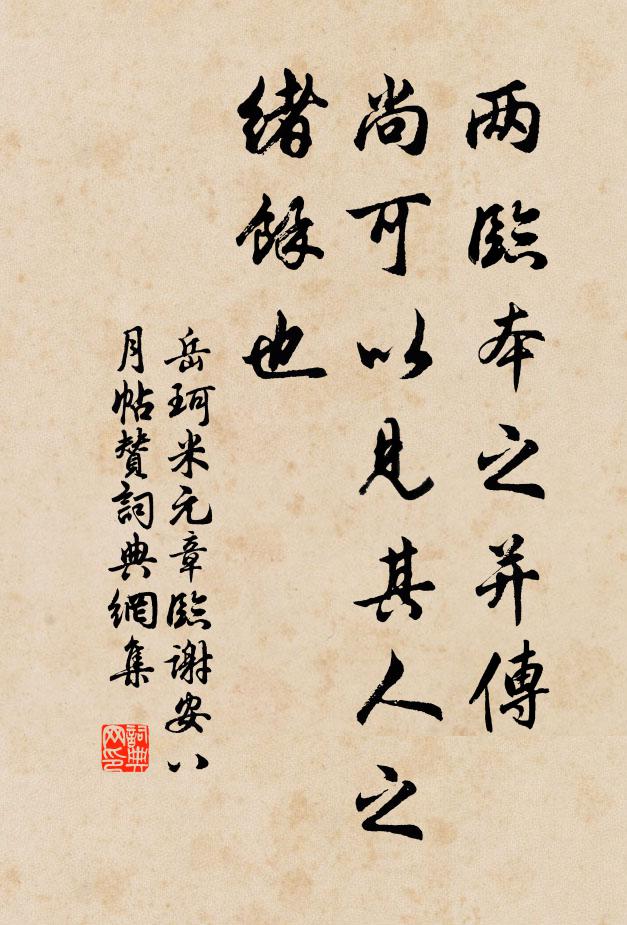 两臨本之并傳
尚可以見其人之
緒餘也
岳珂米元章臨谢安八
月帖贊詞典網集
詞典
网印